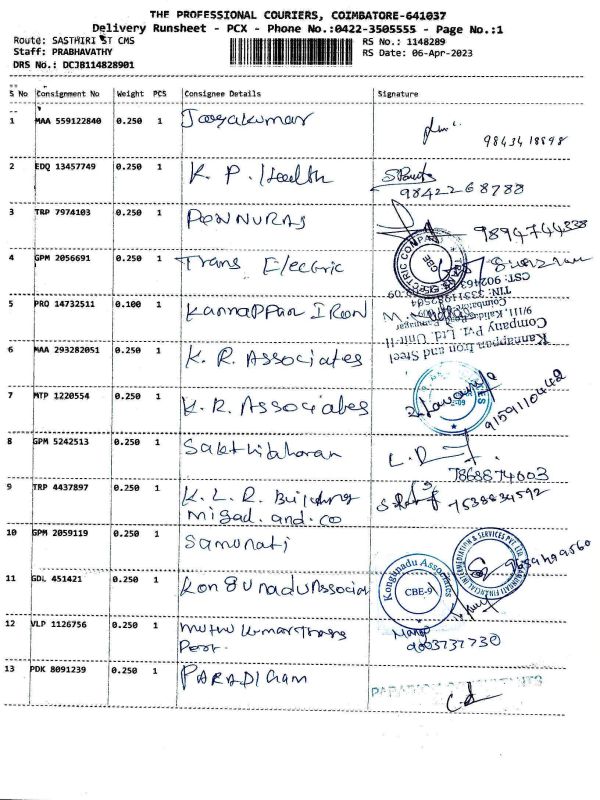 THE PROFESSIONAL COURIERS, COIMBATORE-641037
Delivery Runsheet - PCX - Phone No.:0422-3505555 - Page No.:1
Route: SASTHIRI ST CMS
RS No.: 1148289
Staff: PRABHAVATHY
RS Date: 06-Apr-2023
DRS No.: DCJB114828901
S No Consignment No Weight PCS Consignee Details Signature
1 MAA 559122840 0.250 1 Jayakumar
2 EDQ 13457749 0.250 1 K. P. Health
9842268788
3 TRP 7974103 0.250 1 PONNURAJ
9894744838
4 GPM 2056691 0.250 1 Trans Electric
CBE
CST: 902463
TIN: 33114982504
5 PRO 14732511 0.100 1 KannappAn IRon
Coimbatore
9/111, Kalidas Road, Ramnagar
Company Pvt. Ltd. Unit-II
Kannappan Iron and Steel
6 MAA 293282051 0.250 1 K. R. Associates
7 MTP 1220554 0.250 1 K. R. Associates
9159110442
8 GPM 5242513 0.250 1 Sakthidharan
7868874003
9 TRP 4437897 0.250 1 K. L. R. Building
and. co
7538834592
10 GPM 2059119 0.250 1 Samunati
11 GDL 451421 0.250 1 Kongunadu Associa
Kongunadu Associates
CBE-9
12 VLP 1126756 0.250 1 muthu kumar Trans
Port.
9003737730
13 PDK 8091239 0.250 1 PARADIGam